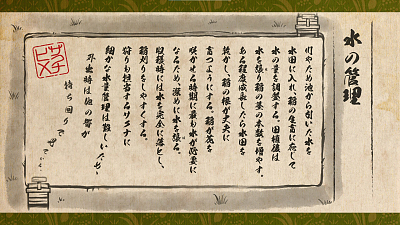 水の管理
川やため池から引いた水を
水田に入れ、稲の生育に応じて
水の量を調整する。田植後は
水を張り稲の茎の本数を増やす。
ある程度成長したら水田を
乾かし、稲の根が丈夫に
育つようにする。稲が花を
咲かせる時期に最も水が必要に
なるため深めに水を張る。
収穫時には水を完全に落とし、
稲刈りをしやすくする。
狩りも担当するサクナに
細かな水量管理は難しいため、
外出時は他の者が
持ち回りで
サクナ
ヒメ